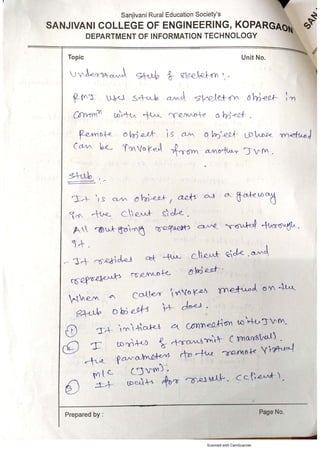 Sanjivani Rural Education Society's
SANJIVANI COLLEGE OF ENGINEERING, KOPARGAON
DEPARTMENT OF INFORMATION TECHNOLOGY
SAN
Topic Unit No.
Understand stub & skeleton :-
RMI uses stub and skeleton object in
Commn with the remote object.
Remote object is an object whose method
can be invoked from another JVM.
Stub :-
It is an object, acts as a gateway
in the client side.
All outgoing requests are routed through
it.
- It resides at the client side and
represents remote object
When a caller invokes method on the
stub objects it does.
① It initiates a connection with JVM.
② I writes & transmit (marshal)
the parameters to the remote Virtual
M/C (JVM).
③ It waits for result. (client).
Prepared by : Page No.
Scanned with CamScanner